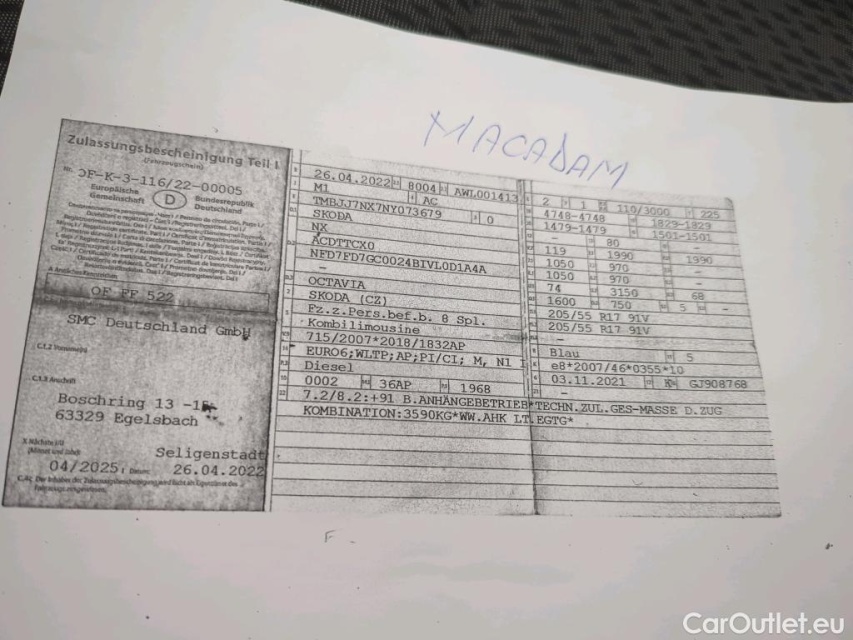 MACADAM
Zulassungsbescheinigung Teil I
(Fahrzeugschein)
Nr. OF-K-3-116/22-00005
Europäische Gemeinschaft D Bundesrepublik Deutschland
A Amtliches Kennzeichen
OF FF 522
SMC Deutschland GmbH
C.1.2 Vorname(n)
C.1.3 Anschrift
Boschring 13 -15
63329 Egelsbach
Seligenstadt
04/2025 26.04.2022
26.04.2022 8004 AWL001413
M1 AC
TMBJJ7NX7NY073679 0
SKODA
NX
ACDTTCX0
NFD7FD7GC0024BIVL0D1A4A
–
OCTAVIA
SKODA (CZ)
Fz.z.Pers.bef.b. 8 Spl.
Kombilimousine
715/2007*2018/1832AP
EURO6;WLTP;AP;PI/CI; M, N1 I
Diesel
0002 36AP 1968
7.2/8.2:+91 B.ANHÄNGEBETRIEB*TECHN.ZUL.GES-MASSE D.ZUG
KOMBINATION:3590KG*WW.AHK LT.EGTG*
2 1 110/3000 225
4748-4748 1829-1829
1479-1479 1501-1501
– 80
119 1990 1990
1050 970 –
1050 970 –
74 3150 68
1600 750 5 –
205/55 R17 91V
205/55 R17 91V
–
Blau 5
e8*2007/46*0355*10
03.11.2021 K GJ908768
–
F-
CarOutlet.eu